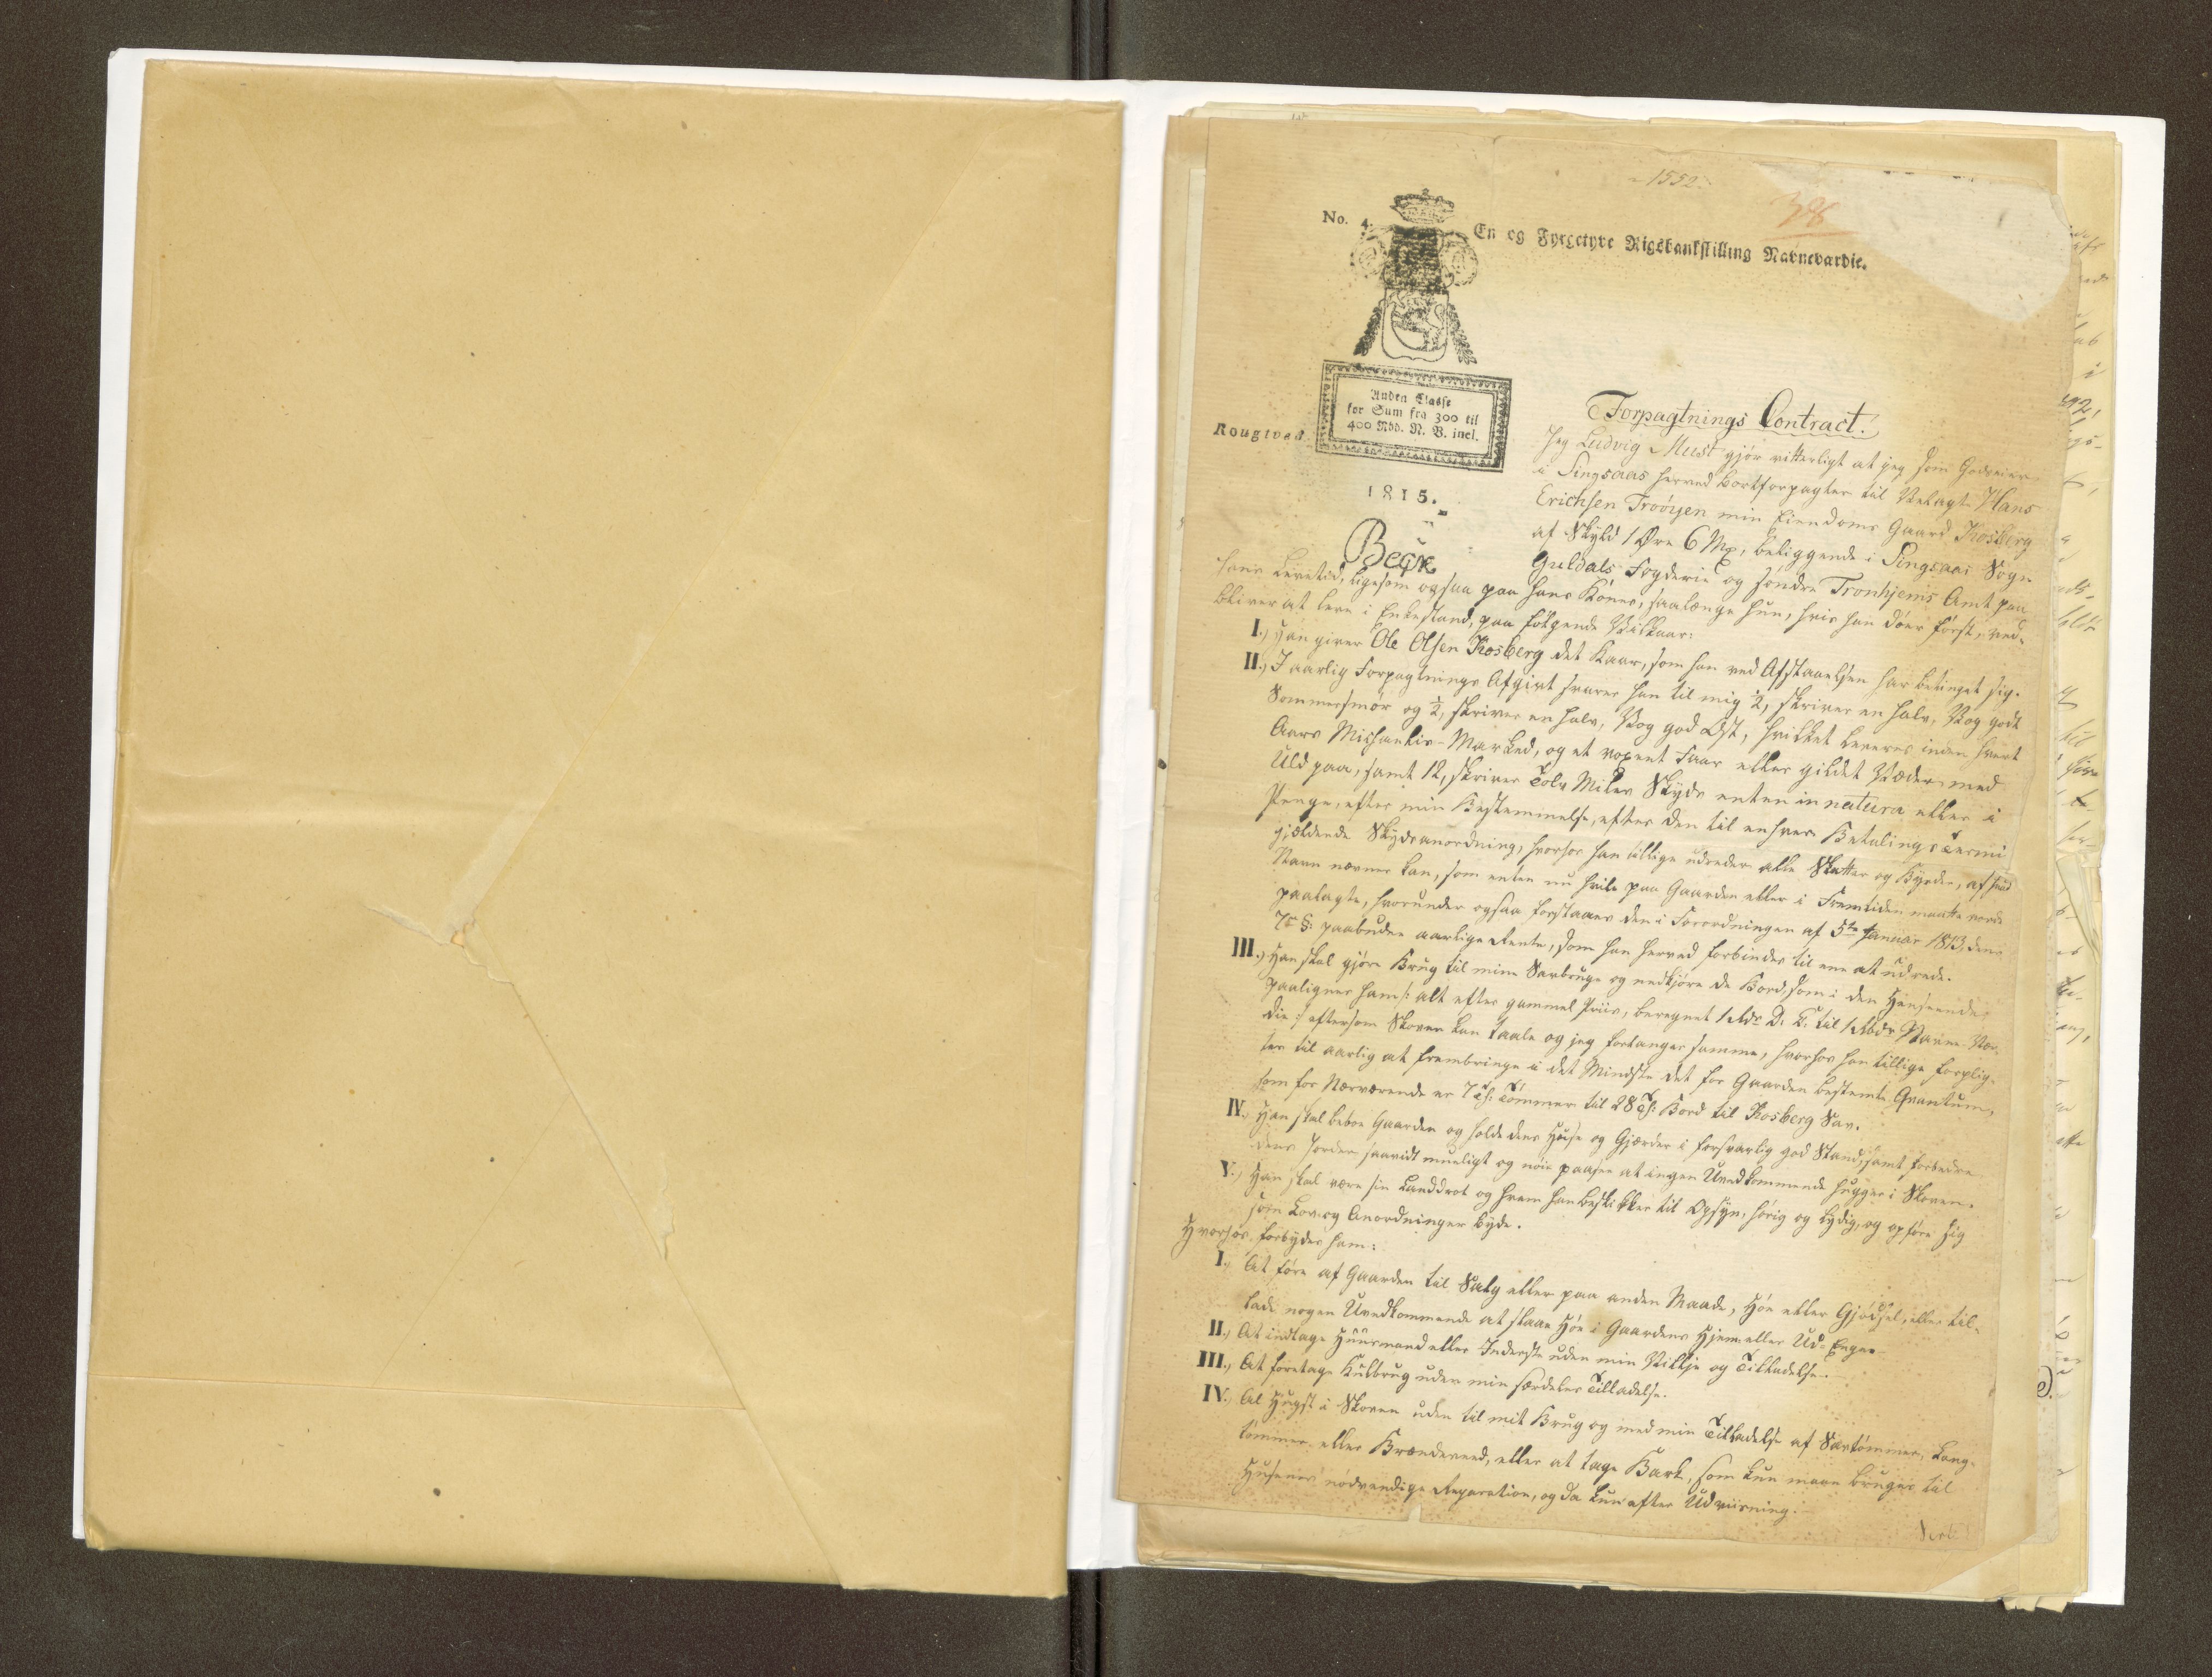 1552.
398
No. 4.
En og Fyrgetyve Rigsbankskilling Navnevardie.
Anden Classe
for Sum fra 300 til
400 Rbd. N. V. incl.
Rougtved
1815.
Beck
Forpagtnings Contract.
Jeg Ludvig Must gjør vitterligt at jeg som Godseier
i Singsaas herved bortforpagter til Velagte Hans
Erichsen Troøyen min Eiendoms Gaard Kosberg
af Skyld 1 Øre 6 Mk, beliggende i Singsaas Sogn
Guldals Fogderie og søndre Tronhjems Amt paa
hans Levetid, ligesom ogsaa paa hans Kones, saalænge hun, hvis han døer først, ved-
bliver at leve i Enkestand, paa følgende Vilkaar:
I.) Han giver Ole Olsen Kosberg det Kaar, som han ved Afstaaelsen har betinget sig.
II.) I aarlig Forpagtnings Afgivt svarer han til mig 1/2, skriver en halv, Vog godt
Sommersmør og 1/2, skriver en halv, Vog god Ost, hvilket leveres inden hvert
Aars Michaelis-Marked, og et voxent Faar eller gildet Væder med
Uld paa, samt 12, skriver Tolv Miles Skyds enten in natura eller i
Penge, efter min Bestemmelse, efter den til enhver Betalings Termin
gjældende Skydsanordning, hvorhos han tillige udreder alle Skatter og Byrder, af hvad
Navn nævnes kan, som enten nu hvile paa Gaarden eller i Fremtiden maatte vorde
paalagte, hvorunder ogsaa forstaaes den i Forordningen af 5te Januar 1813, dens
7de §: paabudne aarlige Rente, som han herved forbindes til ene at udrede.
III.) Han skal gjøre Brug til mine Savbruge og nedkjøre de Bord, som i den Henseende
paalignes ham /: alt efter gammel Priis, beregnet 1 Rdr D. C. til 1 Rbdr Navne-Vær-
die :/ eftersom Skoven kan taale og jeg forlanger samme, hvorhos han tillige forplig-
ter til aarlig at frembringe i det Mindste det for Gaarden bestemte Qvantum,
som for Nærværende er 7 T: Tømmer til 28 T: Bord til Kosberg Sav.
IV.) Han skal beboe Gaarden og holde dens Huse og Gjærder i forsvarlig god Stand, samt forbedre
dens Jorder saavidt mueligt og nøie paasee at ingen Uvedkommende hugger i Skoven.
V.) Han skal være sin Landdrot og hvem han beskikker til Opsyn, hørig og lydig, og opføre sig
som Lov og Anordninger byde.
Hvorhos forbydes ham:
I., At føre af Gaarden til Salg eller paa anden Maade, Høe eller Gjødsel, eller til-
lade nogen Uvedkommende at slaae Høe i Gaardens Hjem- eller Ud-Enger
II., At indtage Huusmand eller Inderste uden min Villje og Tilladelse.
III., At foretage Kulbrug uden min særdeles Tilladelse.
IV., Al Hugst i Skoven uden til mit Brug og med min Tilladelse af Savtømmer, Lang-
tømmer eller Brændeveed, eller at tage Bark, som kun maae bruges til
Husenes nødvendige Reparation, og da kun efter Udviisning.